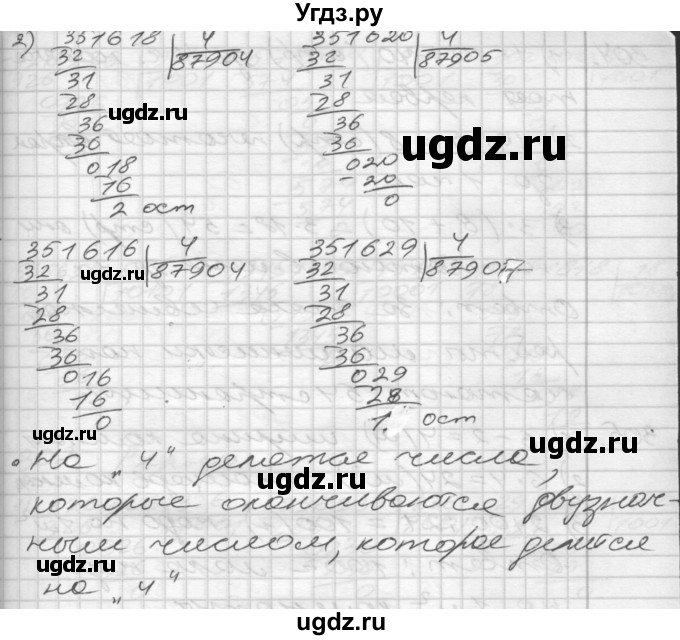 Угдз.ру
2) 351618 | 4
32 87904
31
28
36
36
018
16
2 ост
351620 | 4
32 87905
31
28
36
36
020
- 20
0
351616 | 4
32 87904
31
28
36
36
016
16
0
351629 | 4
32 87907
31
28
36
36
029
28
1. ост
• На „4“ делятся числа,
которые оканчиваются двузнач-
ным числом, которое делится
на „4“
ugdz.ru
ugdz.ru
ugdz.ru
ugdz.ru
ugdz.ru
ugdz.ru
ugdz.ru
ugdz.ru
ugdz.ru
ugdz.ru
ugdz.ru
ugdz.ru